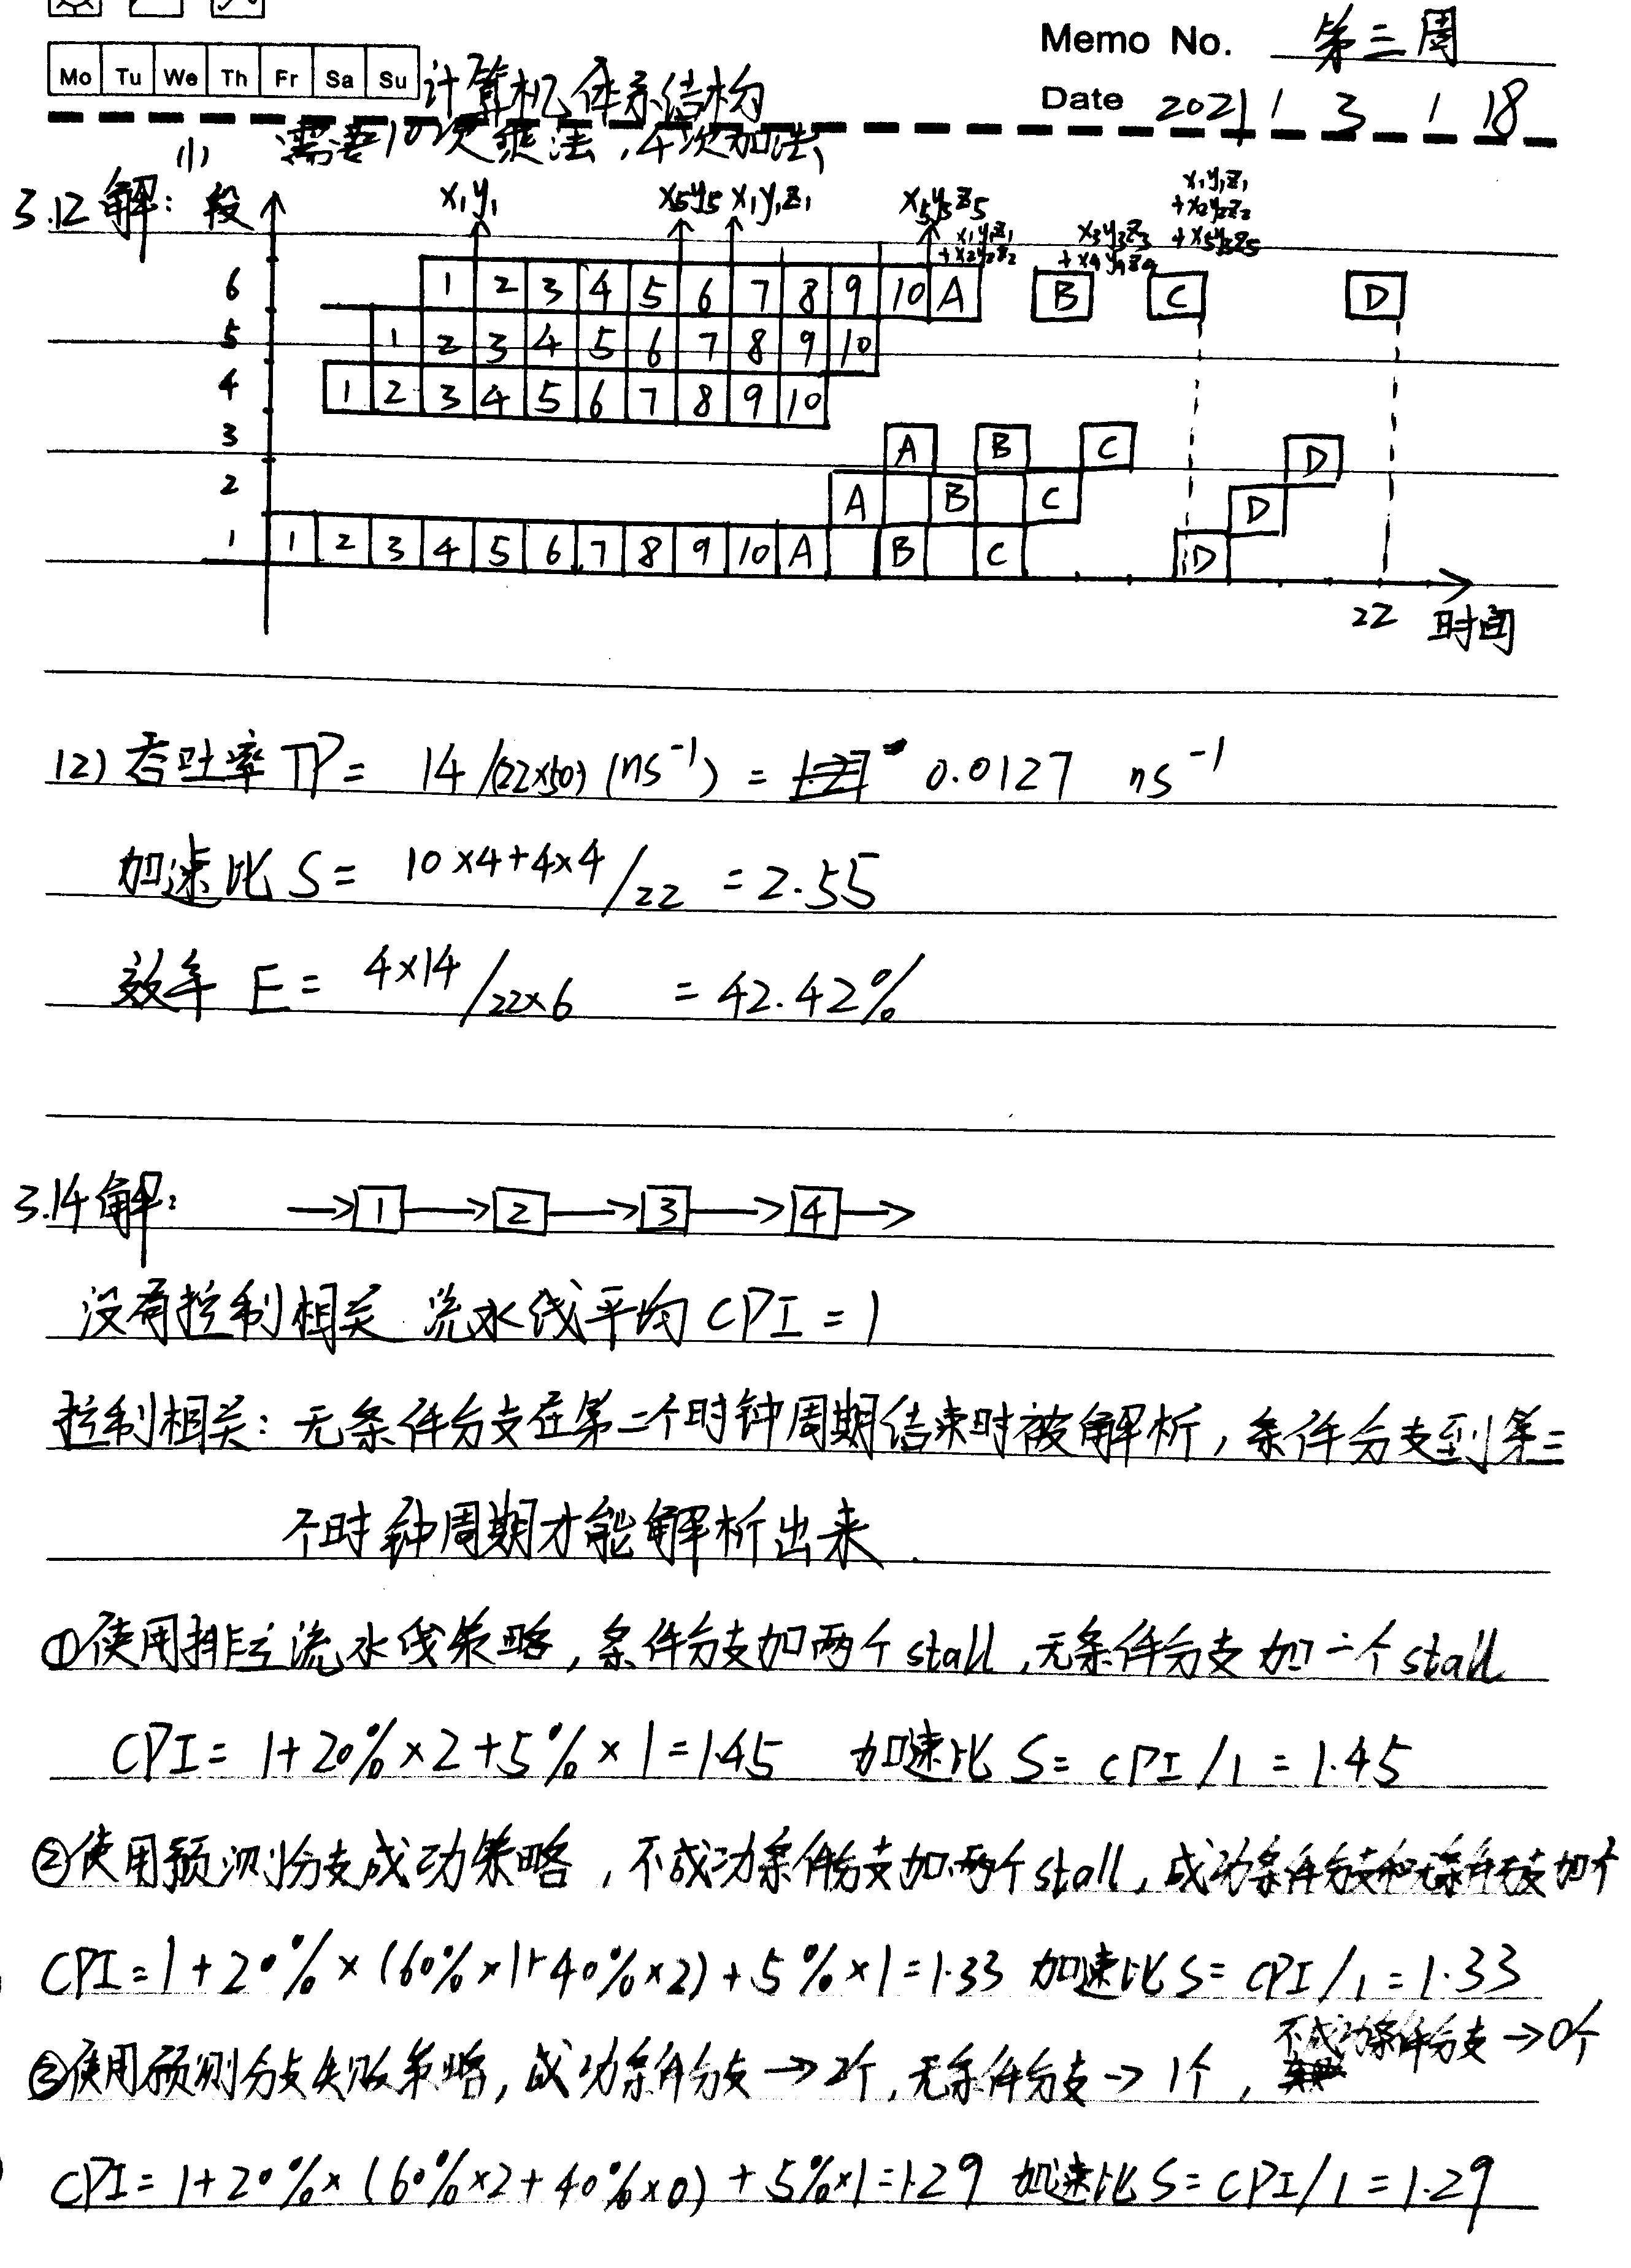 Memo No. 第三周
Mo Tu We Th Fr Sa Su 计算机体系结构
Date 2021 / 3 / 18
(1) 需要10次乘法,4次加法
3.12 解: 段
x₁y₁ x₅y₅ x₁y₁z₁ x₅y₅z₅ x₁y₁z₁ +x₂y₂z₂ x₃y₃z₃ +x₄y₄z₄ x₁y₁z₁ +x₂y₂z₂ +x₅y₅z₅
6 1 2 3 4 5 6 7 8 9 10 A B C D
5 1 2 3 4 5 6 7 8 9 10
4 1 2 3 4 5 6 7 8 9 10
3 A B C D
2 A B C D
1 1 2 3 4 5 6 7 8 9 10 A B C D
22 时间
(2) 吞吐率 TP = 14/(22×50) (ns⁻¹) = 0.0127 ns⁻¹
加速比 S = 10×4+4×4/22 = 2.55
效率 E = 4×14/22×6 = 42.42%
3.14 解: →1→2→3→4→
没有控制相关 流水线平均 CPI = 1
控制相关: 无条件分支在第二个时钟周期结束时被解析, 条件分支到第三
个时钟周期才能解析出来.
①使用排空流水线策略, 条件分支加两个stall, 无条件分支加一个stall
CPI = 1+20%×2+5%×1=1.45 加速比 S= CPI/1 = 1.45
②使用预测分支成功策略, 不成功条件分支加两个stall, 成功条件分支和无条件分支加个
CPI = 1+20%×(60%×1+40%×2)+5%×1=1.33 加速比 S= CPI/1 = 1.33
③使用预测分支失败策略, 成功条件分支→2个, 无条件分支→1个, 不成功条件分支→0个
CPI = 1+20%×(60%×2+40%×0)+5%×1=1.29 加速比 S= CPI/1 = 1.29